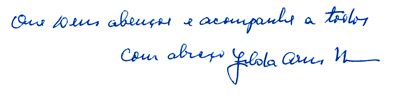 Que Deus abençoe e acompanhe a todos
Com abraço Zilda Arns N